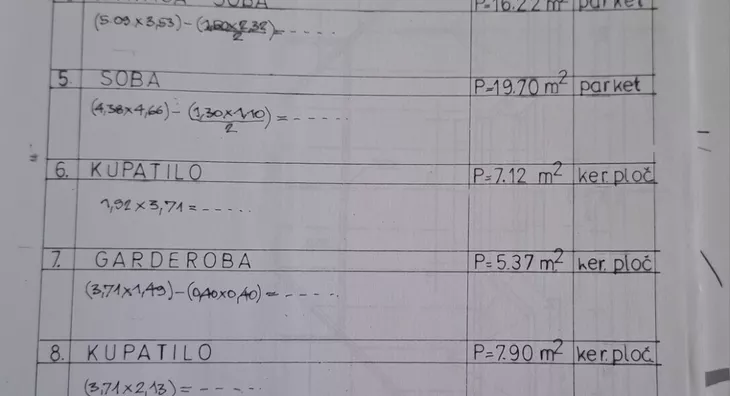 SOBA P=16.22 m² parket
(5.09 x 3,53) - (1,50x2,32)/2 = - - - - -
5. SOBA P=19.70 m² parket
(4,38x4,66) - (1,30x1,10)/2 = - - - - -
6. KUPATILO P=7.12 m² ker. ploč.
1,92 x 3,71 = - - - - -
7. GARDEROBA P=5.37 m² ker. ploč.
(3,71x1,49) - (0,40x0,40) = - - - - -
8. KUPATILO P=7.90 m² ker. ploč.
(3,71x2,13) = - - - - -